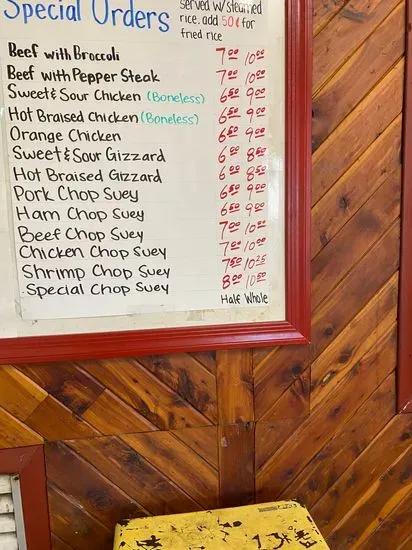 Special Orders
served w/steamed
rice. add 50¢ for
fried rice
Beef with Broccoli 7⁰⁰/10⁰⁰
Beef with Pepper Steak 7⁰⁰/10⁰⁰
Sweet & Sour Chicken (Boneless) 6⁵⁰/9⁰⁰
Hot Braised Chicken (Boneless) 6⁵⁰/9⁰⁰
Orange Chicken 6⁵⁰/9⁰⁰
Sweet & Sour Gizzard 6⁰⁰/8⁵⁰
Hot Braised Gizzard 6⁰⁰/8⁵⁰
Pork Chop Suey 6⁵⁰/9⁰⁰
Ham Chop Suey 6⁵⁰/9⁰⁰
Beef Chop Suey 7⁰⁰/10⁰⁰
Chicken Chop Suey 7⁰⁰/10⁰⁰
Shrimp Chop Suey 7⁵⁰/10²⁵
Special Chop Suey 8⁰⁰/10⁵⁰
Half Whole